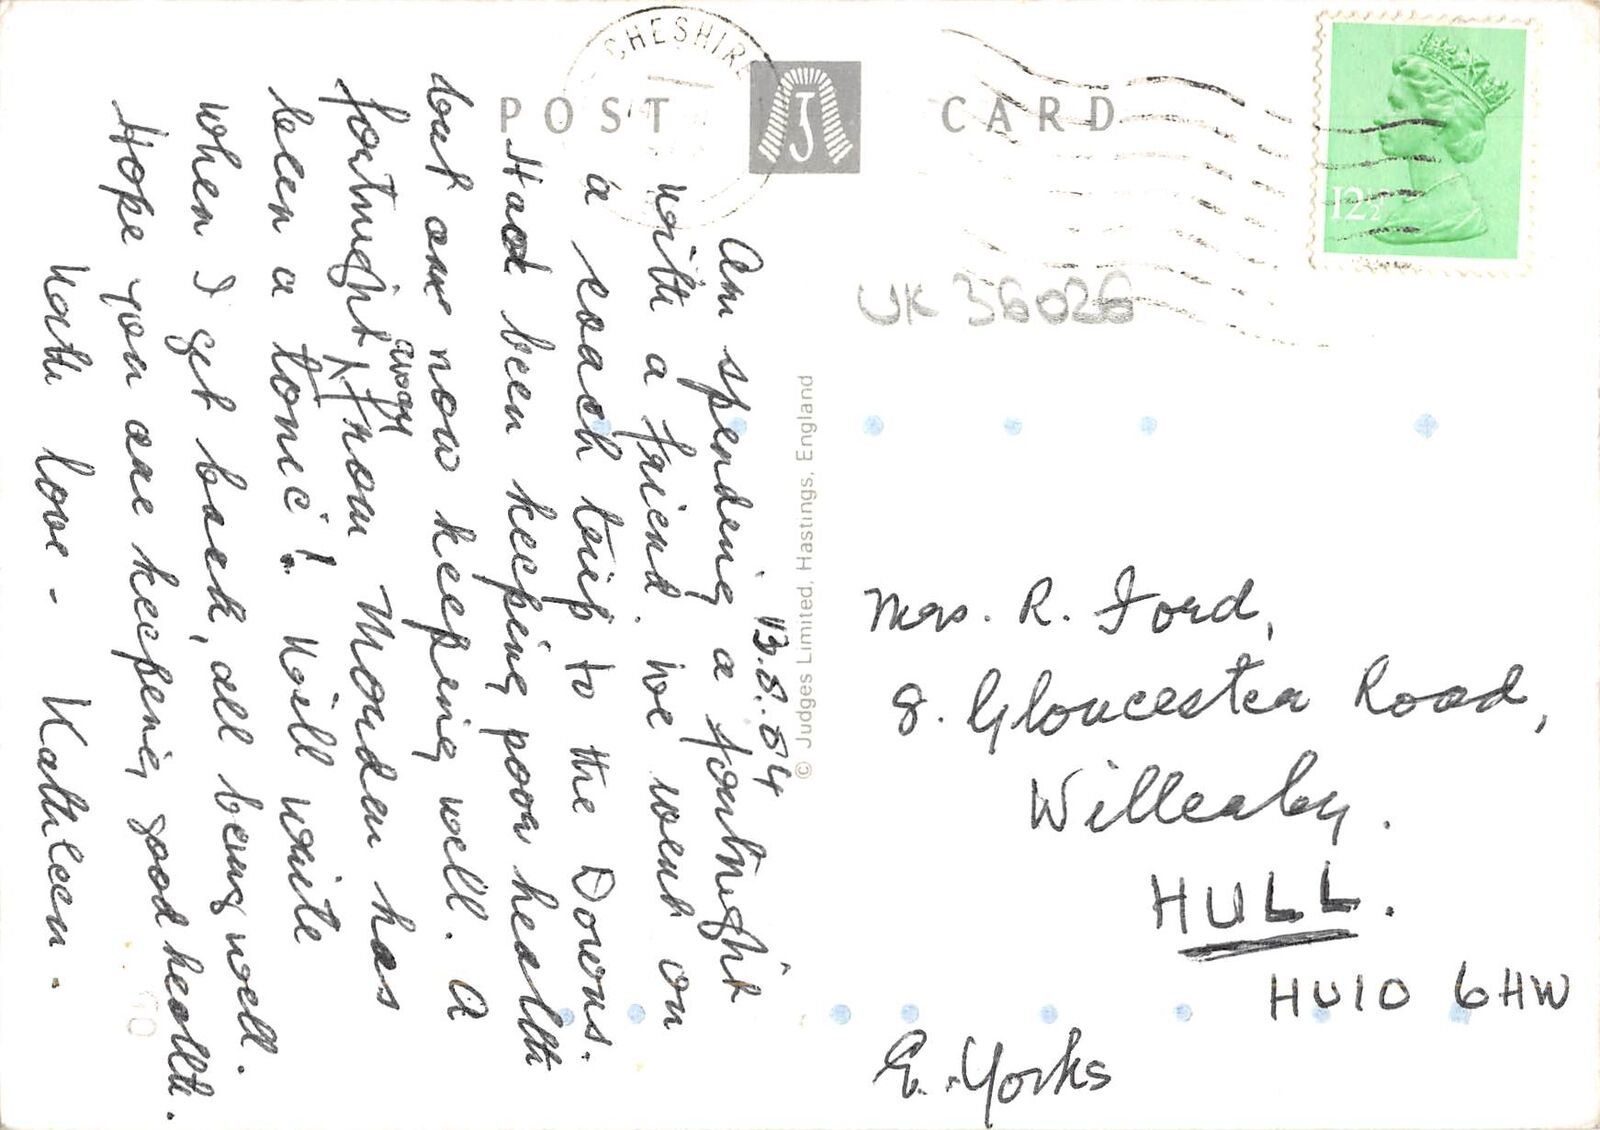 CHESHIRE
POST CARD
J
12½
UK 36026
© Judges Limited, Hastings, England
13.8.84
Am spending a fortnight
with a friend. We went on
a coach trip to the Downs.
Had been keeping poor health
but am now keeping well. A
fortnight away from Morden has
been a tonic! Will write
when I get back, all being well.
Hope you are keeping good health.
With love - Kathleen.
Mrs. R. Ford,
8. Gloucester Road,
Willerby.
HULL.
HU10 6HW
E. Yorks